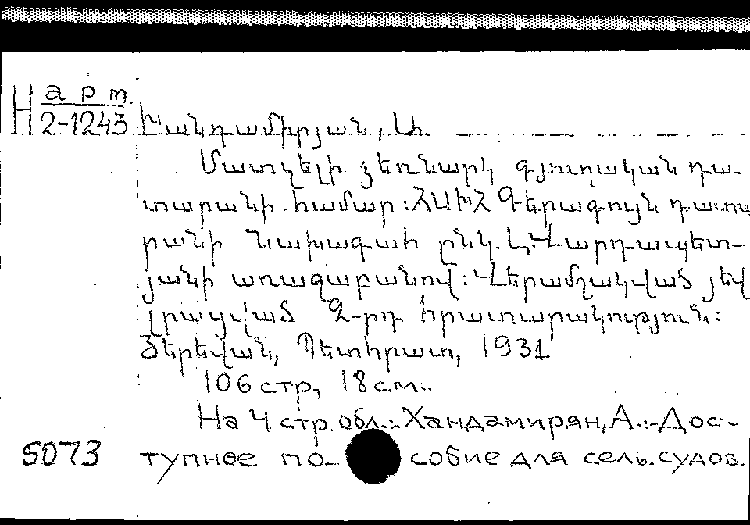 Н арт.
2-1243
Խանդամիրյան, Ա.
Մատչելի ձեռնարկ գյուղական դա-
տարանի համար: ՀՍԽՀ Գերագույն դատա
րանի նախագահ ընկ. Լ. Վարդապետ-
յանի առաջաբանով: Վերամշակված յեվ
լրացված 2-րդ հրատարակություն:
Յերեվան, Պետհրատ, 1931
106 стр, 18 см..
На 4 стр. обл.: Хандамирян, А.-Дос-
5073 тупное по- собие для сель. судов.